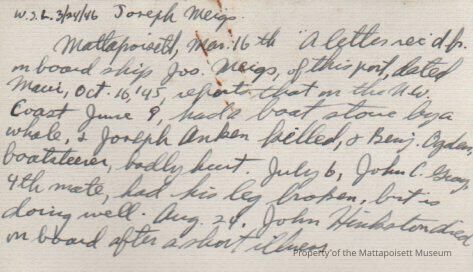 W.S.L. 3/24/46 Joseph Meigs.
Mattapoisett, Mar. 16th "A letter rec'd fr.
on board ship Jos. Meigs, of this port, dated
Maui, Oct. 16, '45, reports that on the N.W.
Coast June 9, had a boat stove by a
whale, & Joseph killed, & Benj. Ogden,
boatsteerer, badly hurt. July 6, John C. Gray
4th mate, had his leg broken, but is
doing well. Aug. 24, John Hinkston died
on board after a short illness.
Property of the Mattapoisett Museum